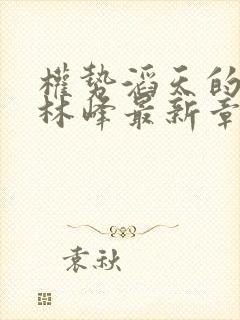 權勢滔天的
林峰最新章
袁秋